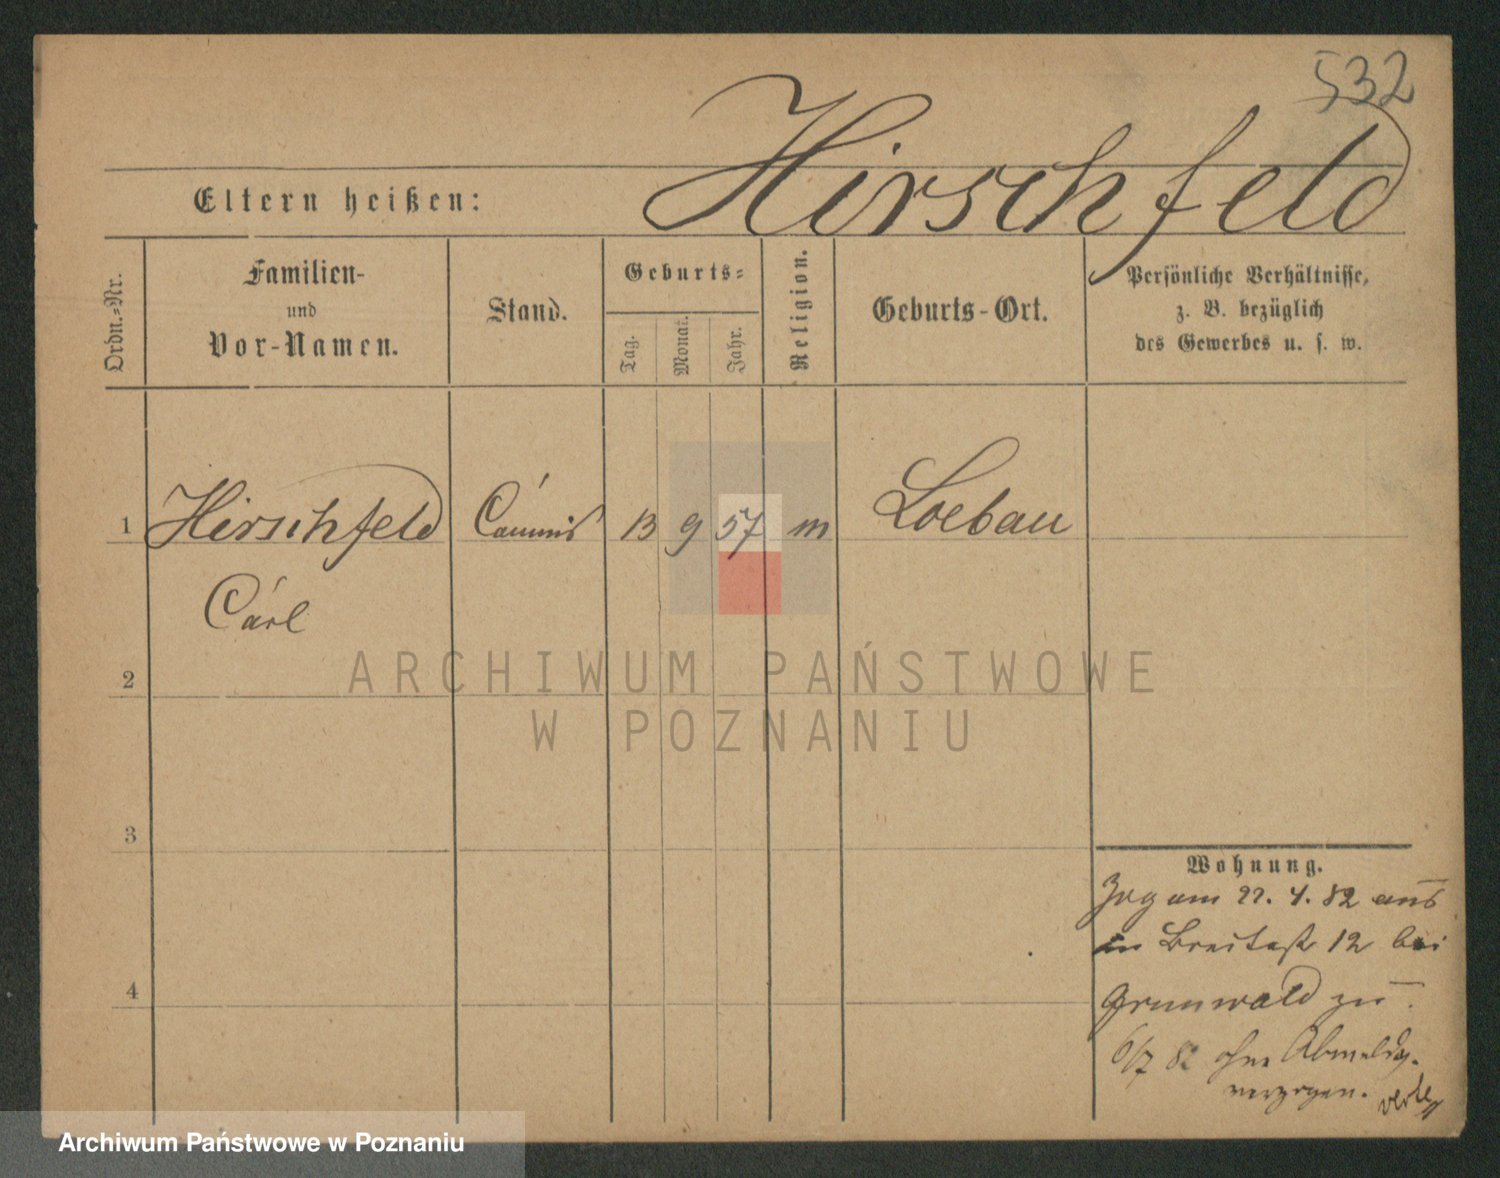 532
Hirschfeld
Eltern heißen:
Ordn.-Nr.
Familien-
und
Vor-Namen.
Stand.
Geburts-
Tag.
Monat.
Jahr.
Religion.
Geburts-Ort.
Persönliche Verhältnisse,
z. B. bezüglich
des Gewerbes u. s. w.
1 Hirschfeld Commis 13 9 57 m Loebau
Carl
2
3
4
Wohnung.
Zog am 22. 4. 82 aus
in Breitestr 12 bei
Grunwald zu.
6/7 82 ohne Abmeldg.
verzogen.
ARCHIWUM PAŃSTWOWE
W POZNANIU
Archiwum Państwowe w Poznaniu